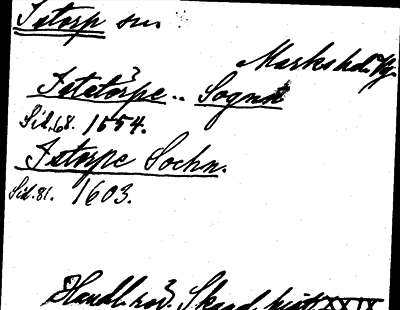 Istorp sn
Marks hd. Vg.
Istetorpe .. Sogn
Sid. 68. 1554.
Istorpe Sochn.
Sid. 81. 1603.
Handl. rör. Skand. hist. XXIX